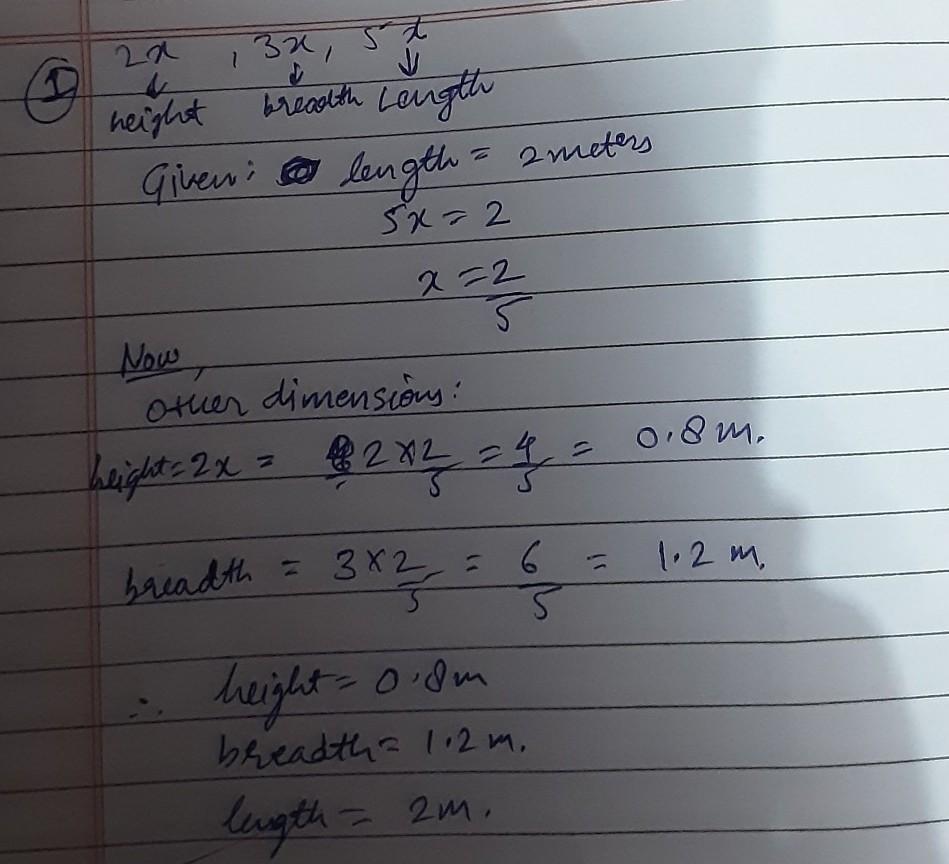 ① 2x , 3x, 5x
↓ ↓ ↓
height breadth Length
Given: length = 2 meters
5x = 2
x = 2/5
Now,
other dimensions:
height = 2x = 2 × 2/5 = 4/5 = 0.8 m.
breadth = 3 × 2/5 = 6/5 = 1.2 m.
∴ height = 0.8m
breadth = 1.2 m.
length = 2m.